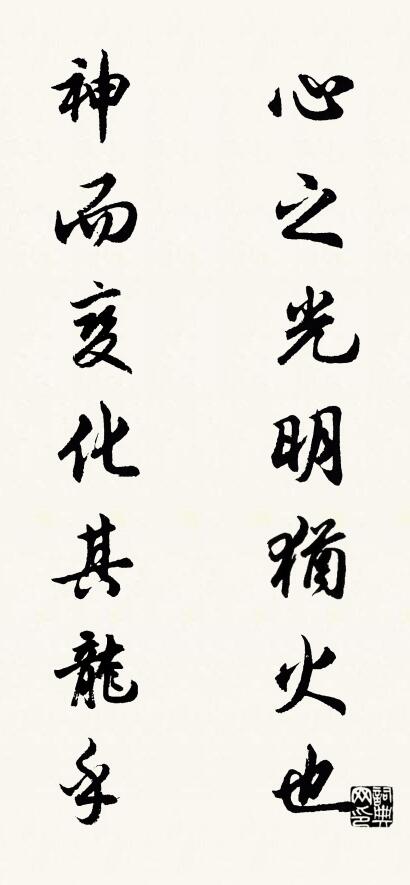 心之光明猶火也
神而变化其龍乎
詞典网印